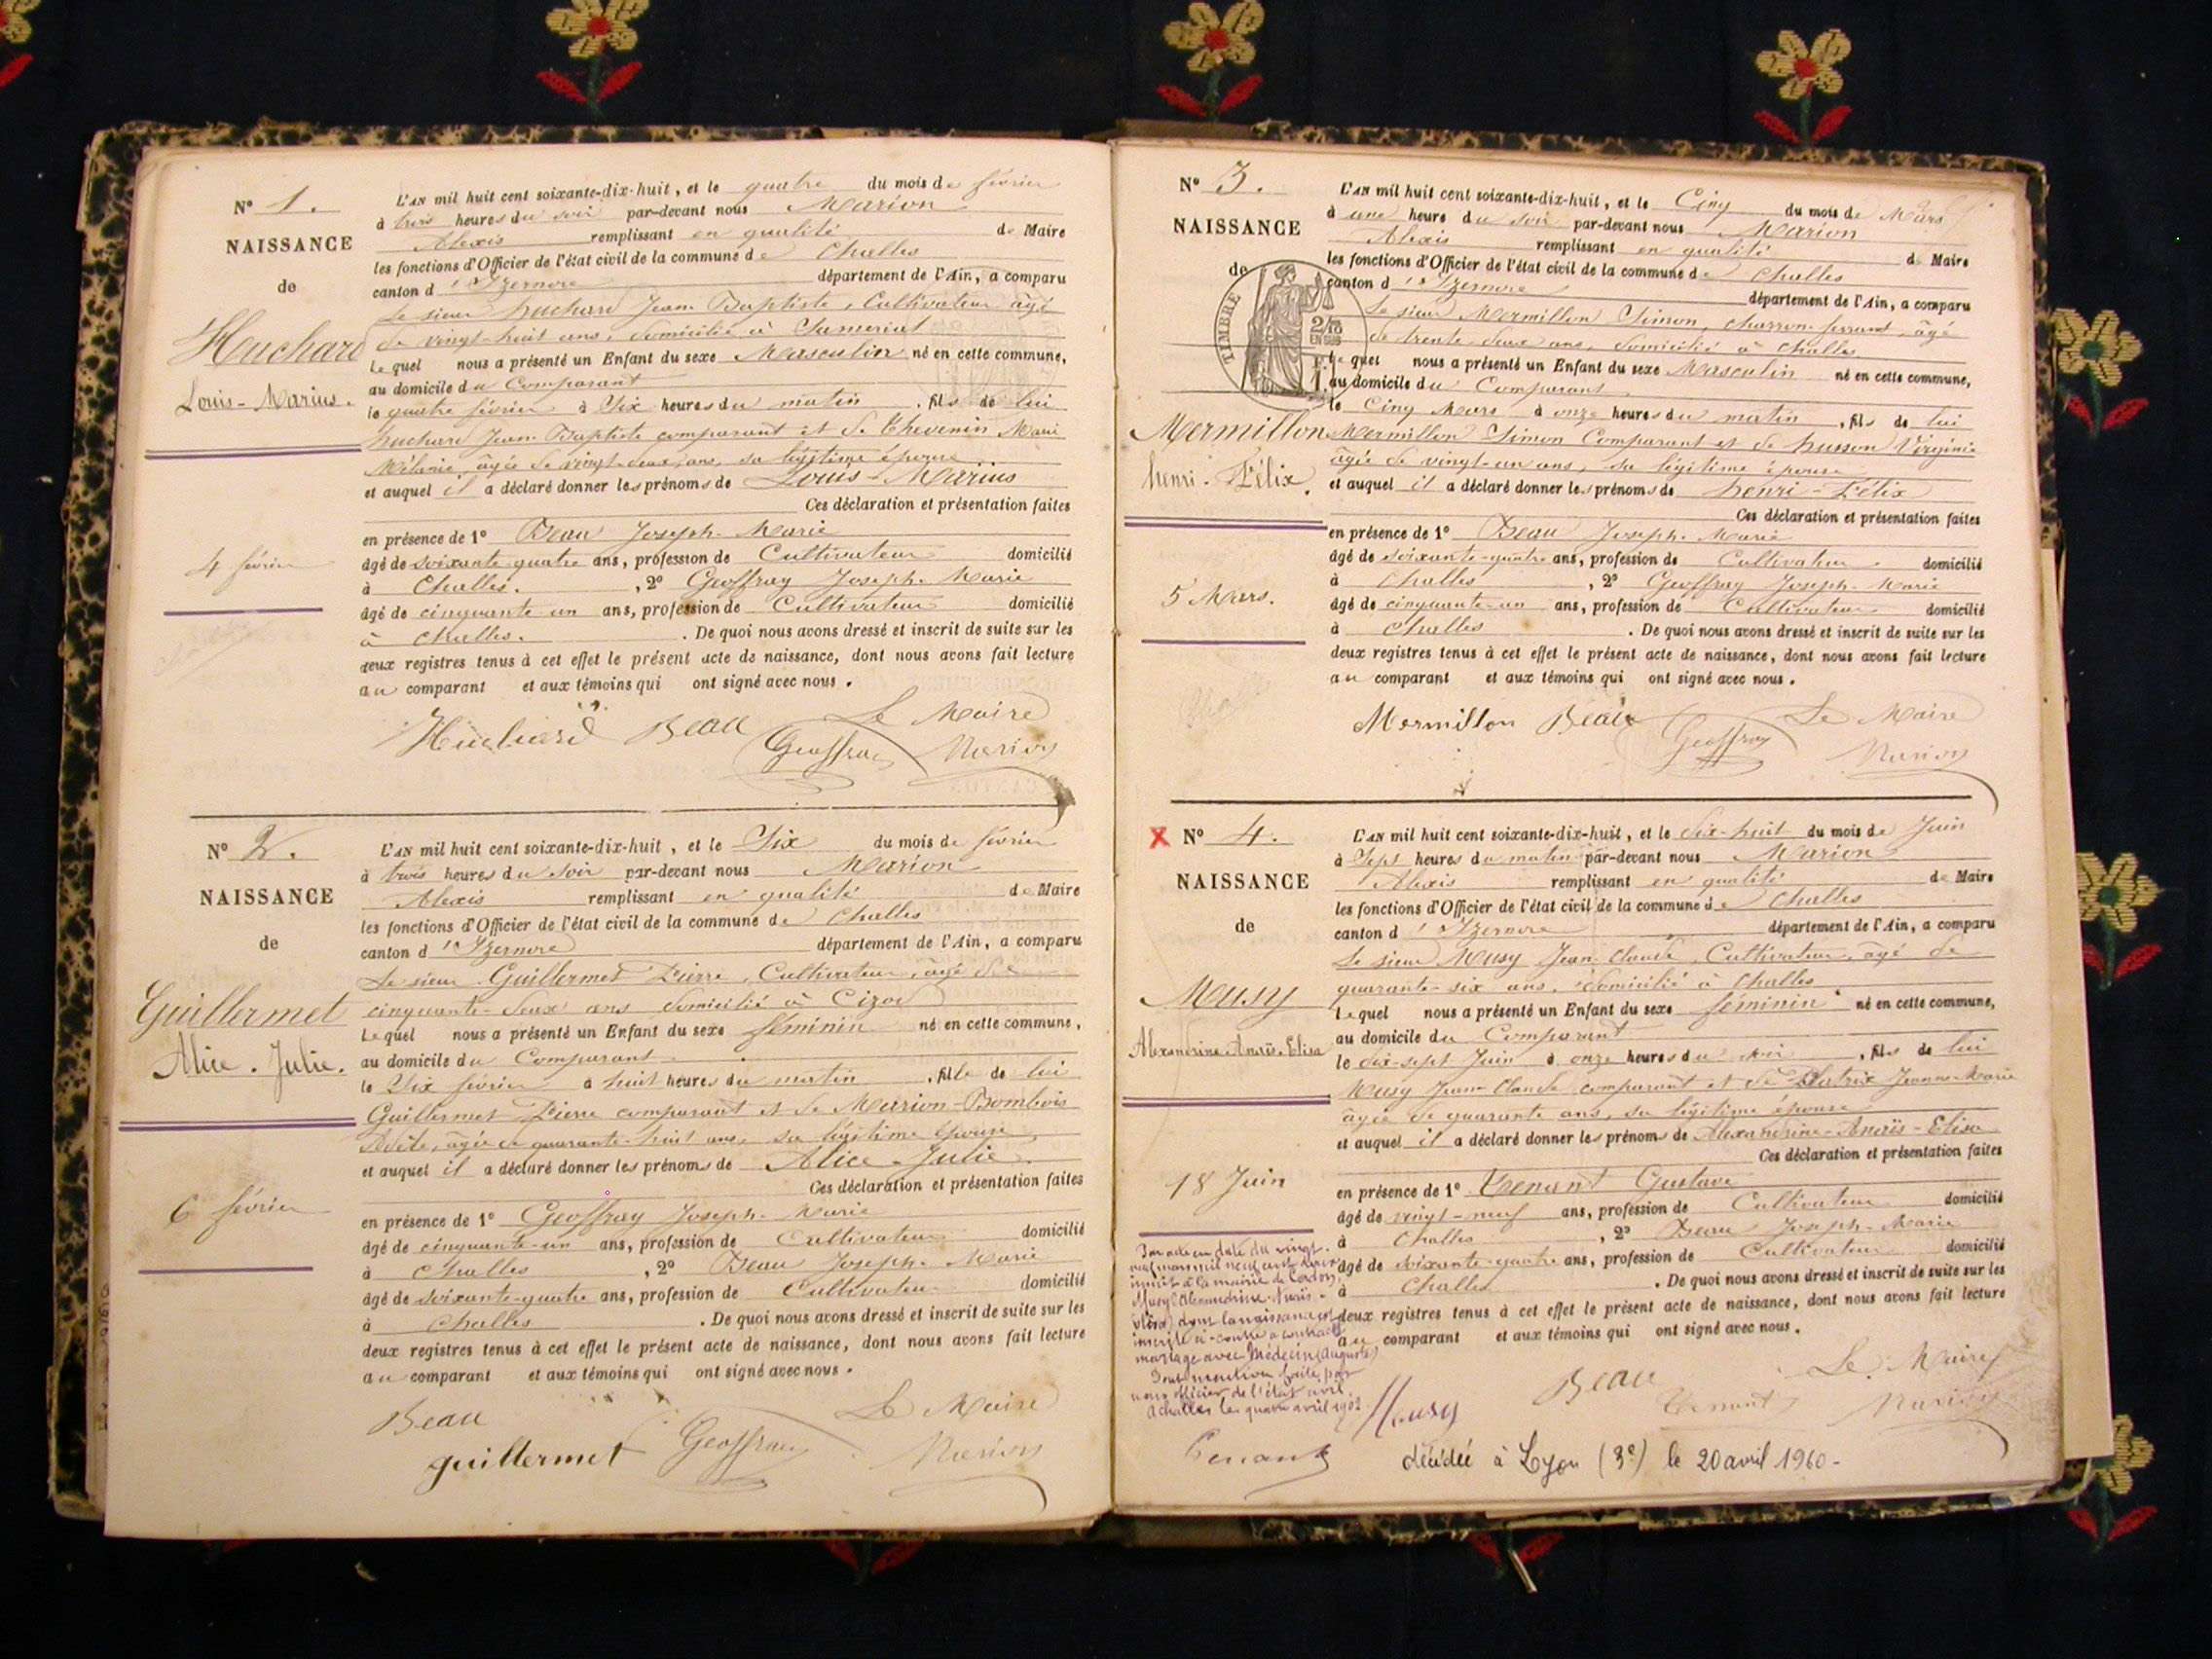 N° 1.
NAISSANCE
de
Huchard
Louis-Marius.
4 février
L'AN mil huit cent soixante-dix-huit, et le quatre du mois de février
à trois heures du soir par-devant nous Marion
Alexis remplissant en qualité de Maire
les fonctions d'Officier de l'état civil de la commune de Challes
canton d'Izernore département de l'Ain, a comparu
Le sieur huchard Jean Baptiste, Cultivateur âgé
de vingt-huit ans, domicilié à Samériat
Lequel nous a présenté un Enfant du sexe Masculin né en cette commune,
au domicile du Comparant
le quatre février à Six heures du matin, fils de lui
huchard Jean Baptiste comparant et de Thevenin Marie
Mélanie, âgée de vingt-deux ans, sa légitime épouse
et auquel il a déclaré donner les prénoms de Louis-Marius
Ces déclaration et présentation faites
en présence de 1° Beau Joseph-Marie
âgé de soixante-quatre ans, profession de Cultivateur domicilié
à Challes. , 2° Geoffray Joseph-Marie
âgé de cinquante un ans, profession de Cultivateur domicilié
à Challes. . De quoi nous avons dressé et inscrit de suite sur les
deux registres tenus à cet effet le présent acte de naissance, dont nous avons fait lecture
au comparant et aux témoins qui ont signé avec nous.
Huchard Beau Le Maire
Geoffray Marion
N° 2.
NAISSANCE
de
Guillermet
Alice. Julie.
6 février
L'AN mil huit cent soixante-dix-huit, et le Six du mois de février
à trois heures du soir par-devant nous Marion
Alexis remplissant en qualité de Maire
les fonctions d'Officier de l'état civil de la commune de Challes
canton d'Izernore département de l'Ain, a comparu
Le sieur Guillermet Pierre, Cultivateur, âgé de
cinquante-deux ans domicilié à Cizod
Lequel nous a présenté un Enfant du sexe féminin né en cette commune,
au domicile du Comparant
le Six février à huit heures du matin, fille de lui
Guillermet Pierre comparant et de Marion-Bombois
Adèle, âgée de quarante-huit ans, sa légitime épouse
et auquel il a déclaré donner les prénoms de Alice-Julie.
Ces déclaration et présentation faites
en présence de 1° Geoffray Joseph-Marie
âgé de cinquante-un ans, profession de Cultivateur domicilié
à Challes , 2° Beau Joseph-Marie
âgé de soixante-quatre ans, profession de Cultivateur domicilié
à Challes . De quoi nous avons dressé et inscrit de suite sur les
deux registres tenus à cet effet le présent acte de naissance, dont nous avons fait lecture
au comparant et aux témoins qui ont signé avec nous.
Beau Le Maire
guillermet Geoffray Marion
N° 3.
NAISSANCE
de
TIMBRE
2/10
EN SUS
Mermillon
henri-Félix.
5 Mars.
L'AN mil huit cent soixante-dix-huit, et le Cinq du mois de Mars
à une heure du soir par-devant nous Marion
Alexis remplissant en qualité de Maire
les fonctions d'Officier de l'état civil de la commune de Challes
canton d'Izernore département de l'Ain, a comparu
Le sieur Mermillon Simon, charron-ferrant, âgé
de trente-deux ans, domicilié à Challes
Lequel nous a présenté un Enfant du sexe Masculin né en cette commune,
au domicile du Comparant
le Cinq Mars à onze heures du matin, fils de lui
Mermillon Simon Comparant et de husson Virginie
âgée de vingt-un ans, sa légitime épouse
et auquel il a déclaré donner les prénoms de henri-Félix
Ces déclaration et présentation faites
en présence de 1° Beau Joseph-Marie
âgé de soixante-quatre ans, profession de Cultivateur domicilié
à Challes , 2° Geoffray Joseph-Marie
âgé de cinquante-un ans, profession de Cultivateur domicilié
à Challes . De quoi nous avons dressé et inscrit de suite sur les
deux registres tenus à cet effet le présent acte de naissance, dont nous avons fait lecture
au comparant et aux témoins qui ont signé avec nous.
Mermillon Beau Le Maire
Geoffray Marion
X N° 4.
NAISSANCE
de
Musy
Alexandrine-Anaïs-Elisa
18 Juin
L'AN mil huit cent soixante-dix-huit, et le dix-huit du mois de Juin
à Sept heures du matin par-devant nous Marion
Alexis remplissant en qualité de Maire
les fonctions d'Officier de l'état civil de la commune de Challes
canton d'Izernore département de l'Ain, a comparu
Le sieur Musy Jean-Claude, Cultivateur, âgé de
quarante-six ans, domicilié à Challes
Lequel nous a présenté un Enfant du sexe féminin né en cette commune,
au domicile du Comparant
le dix-sept Juin à onze heures du soir, fils de lui
Musy Jean-Claude comparant et de Jeanne-Marie
âgée de quarante ans, sa légitime épouse
et auquel il a déclaré donner les prénoms de Alexandrine-Anaïs-Elisa
Ces déclaration et présentation faites
en présence de 1° Tenant Gustave
âgé de vingt-neuf ans, profession de Cultivateur domicilié
à Challes , 2° Beau Joseph-Marie
âgé de soixante-quatre ans, profession de Cultivateur domicilié
à Challes . De quoi nous avons dressé et inscrit de suite sur les
deux registres tenus à cet effet le présent acte de naissance, dont nous avons fait lecture
au comparant et aux témoins qui ont signé avec nous.
Par acte en date du vingt-
mars mil neuf cent
inscrit à la mairie de Cerdon,
Musy Alexandrine-Anaïs-
Elisa dont la naissance est
inscrite ci-contre a contracté
mariage avec Médecin Auguste
Dont mention faite par
nous officier de l'état civil.
A Challes le quatre avril 1902
Musy Beau Tenant Le Maire
Marion
Tenant
décédée à Lyon (3e) le 20 avril 1960-